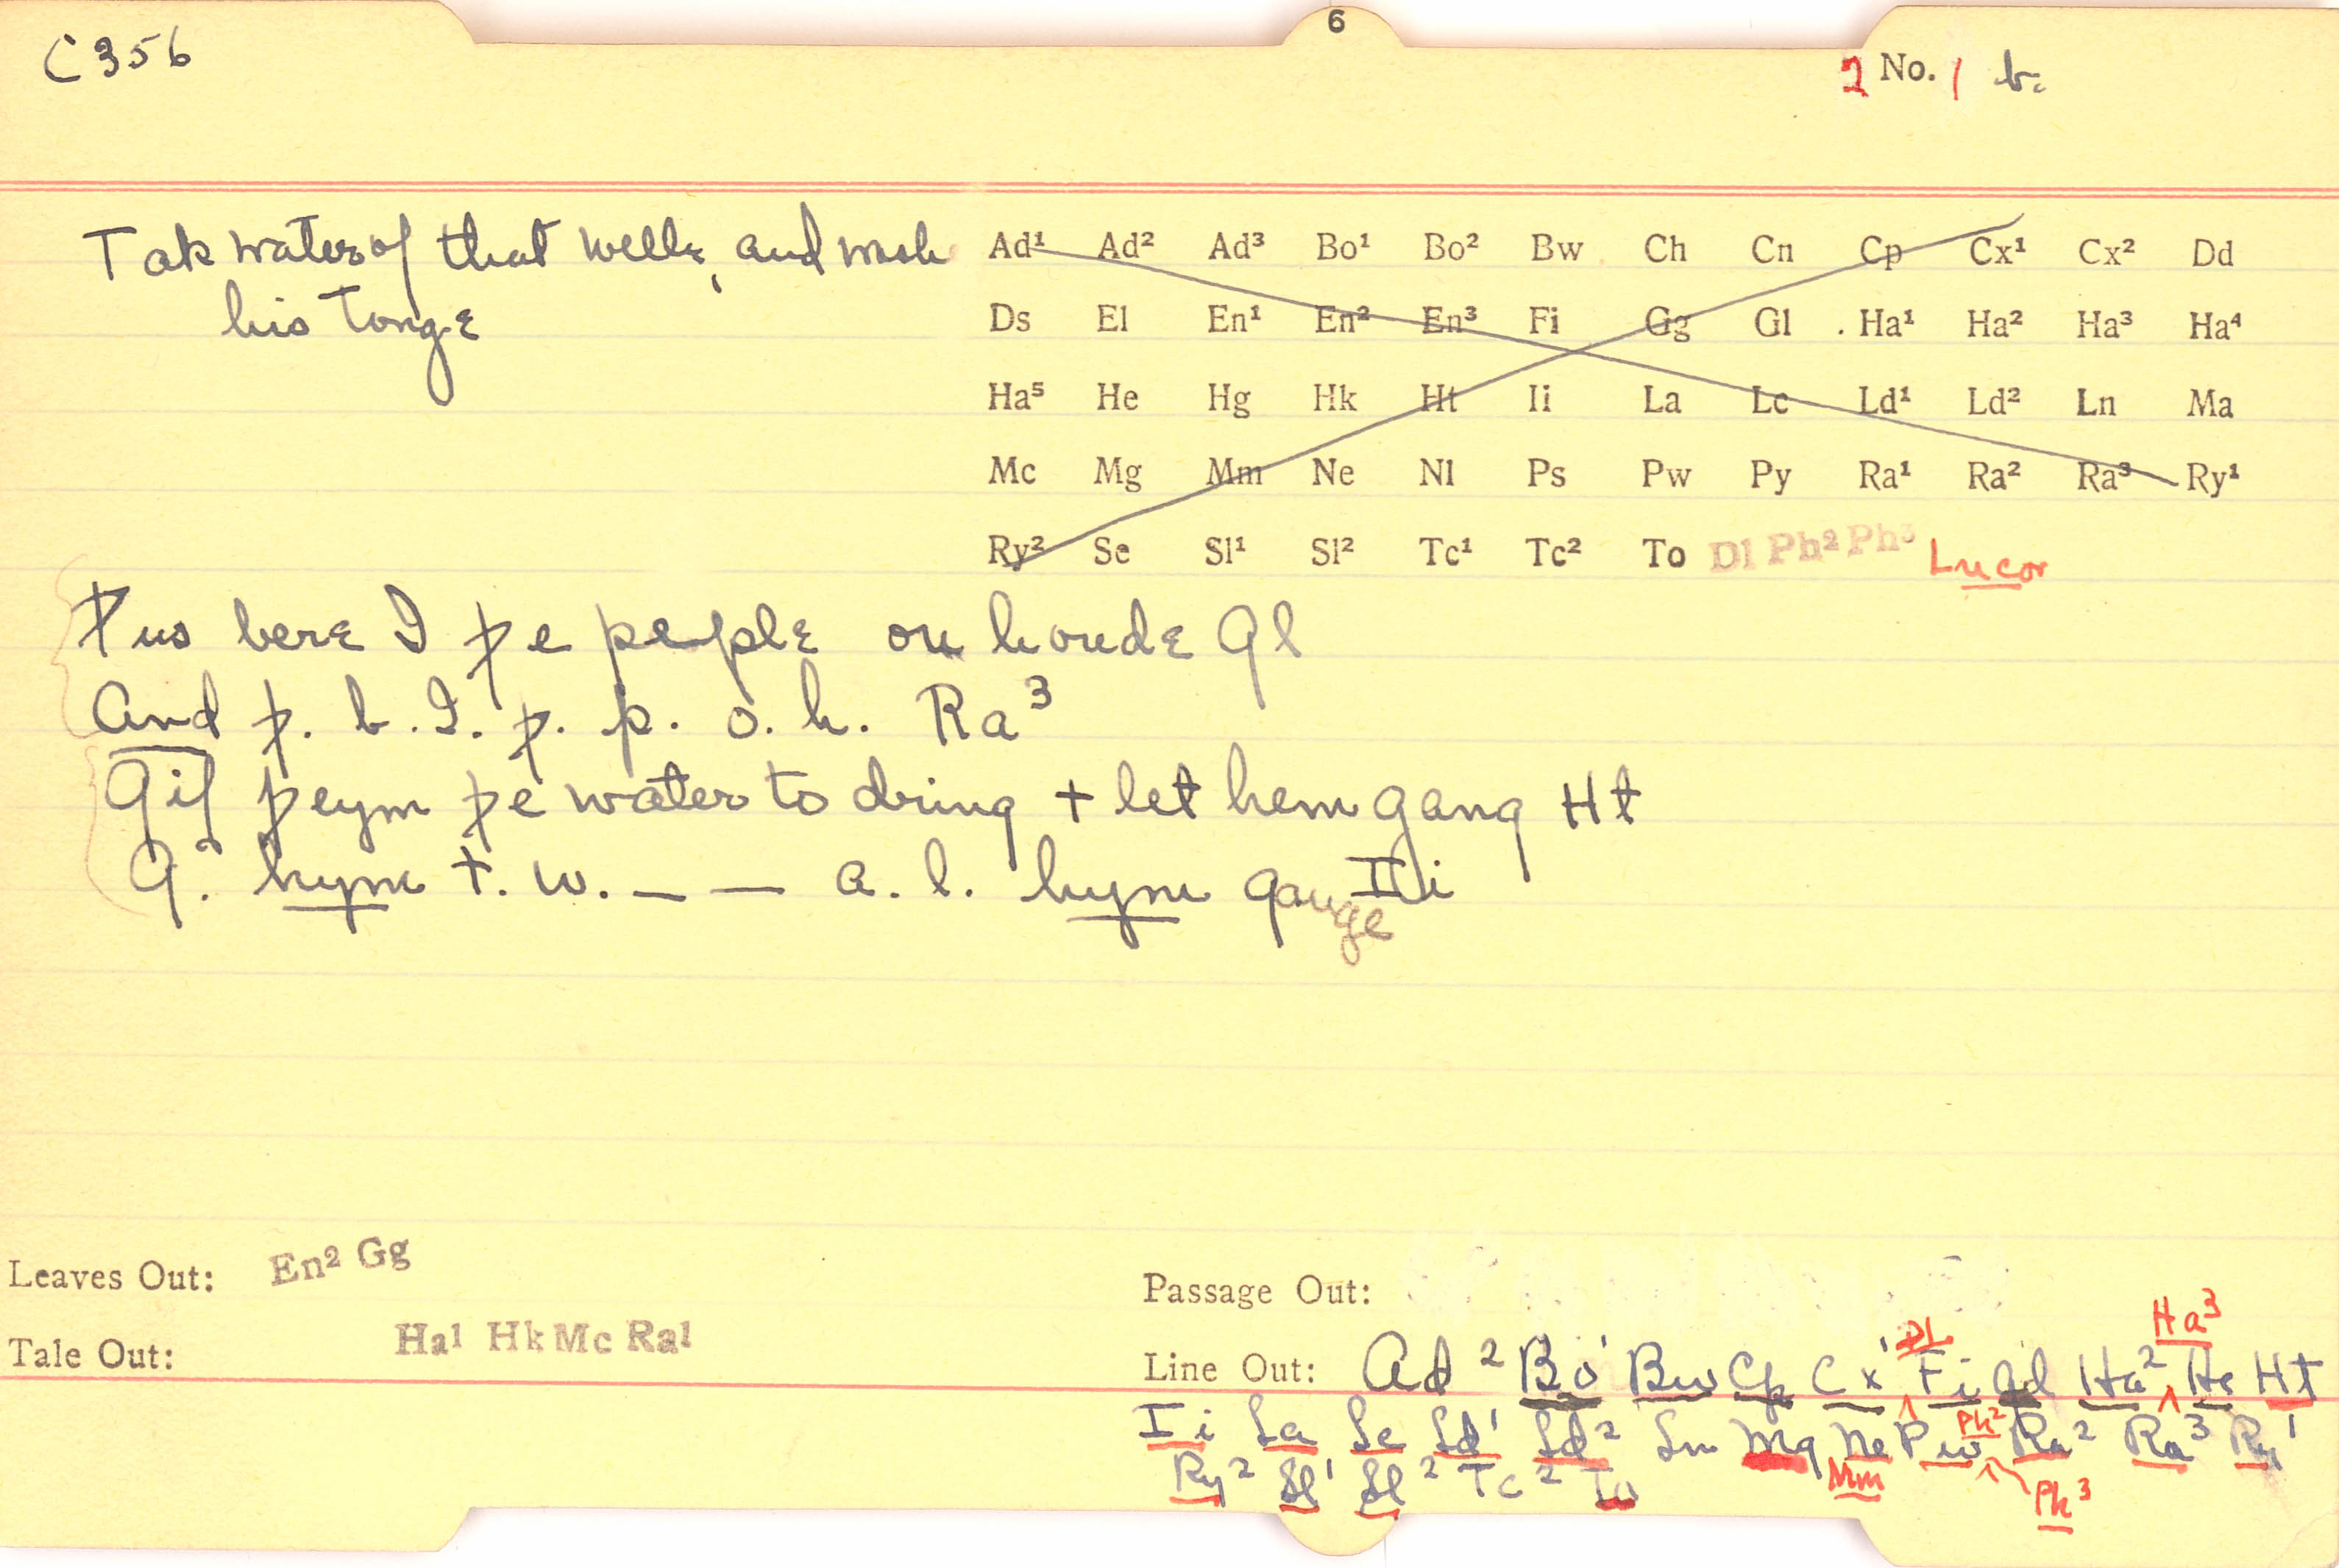 6
C 356
2 No. 1 b.
Tak water of that welle, and wash
his tonge
Ad¹ Ad² Ad³ Bo¹ Bo² Bw Ch Cn Cp Cx¹ Cx² Dd
Ds El En¹ En² En³ Fi Gg Gl Ha¹ Ha² Ha³ Ha⁴
Ha⁵ He Hg Hk Ht Ii La Lc Ld¹ Ld² Ln Ma
Mc Mg Mm Ne Nl Ps Pw Py Ra¹ Ra² Ra³ Ry¹
Ry² Se Sl¹ Sl² Tc¹ Tc² To Dl Ph² Ph³ Lucor
Þus bere I þe peple on honde Gl
And þ. b. I. þ. p. o. h. Ra³
Gif þeym þe water to dring + let hem gang Ht
G. hym t. w. — — a. l. hym gange Ii
Leaves Out: En² Gg
Tale Out: Ha¹ Hk Mc Ra¹
Passage Out:
Line Out: Ad² Bo¹ Bw Cp Cx¹ Dl Fi Gl Ha² Ha³ He Ht
Ii La Lc Ld¹ Ld² Ln Mg Mm Ne Ph² Ph³ Pw Ra² Ra³ Ry¹
Ry² Sl¹ Sl² Tc² To